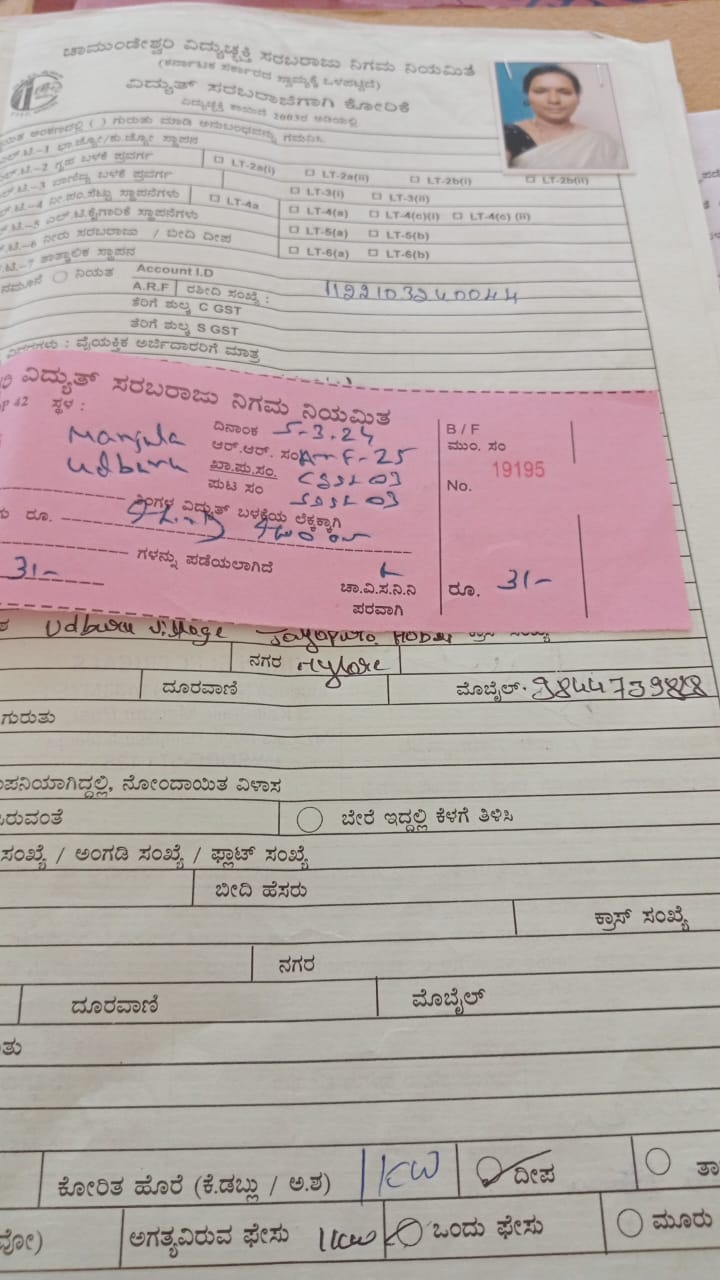 ಚಾಮುಂಡೇಶ್ವರಿ ವಿದ್ಯುಚ್ಛಕ್ತಿ ಸರಬರಾಜು ನಿಗಮ ನಿಯಮಿತ
(ಕರ್ನಾಟಕ ಸರ್ಕಾರದ ಸ್ವಾಮ್ಯಕ್ಕೆ ಒಳಪಟ್ಟಿದೆ)
ವಿದ್ಯುತ್ ಸರಬರಾಜಿಗಾಗಿ ಕೋರಿಕೆ
ವಿದ್ಯುಚ್ಛಕ್ತಿ ಕಾಯಿದೆ 2003ರ ಅಡಿಯಲ್ಲಿ
( ) ಗುರುತು ಮಾಡಿ ಅನುಬಂಧವನ್ನು ಗಮನಿಸಿ
ಸ್ಥಾಪನ
ಗೃಹ ಬಳಕೆ ಪ್ರವರ್ಗ LT-2a(i) LT-2a(ii) LT-2b(i) LT-2b(ii)
ವಾಣಿಜ್ಯ ಬಳಕೆ ಪ್ರವರ್ಗ LT-3(i) LT-3(ii)
ನೀ.ಪಂ.ಸೆಟ್ಟು ಸ್ಥಾಪನೆಗಳು LT-4a LT-4(a) LT-4(c)(i) LT-4(c) (ii)
ಎಲ್ ಟಿ.ಕೈಗಾರಿಕೆ ಸ್ಥಾಪನೆಗಳು LT-5(a) LT-5(b)
ನೀರು ಸರಬರಾಜು / ಬೀದಿ ದೀಪ LT-6(a) LT-6(b)
ತಾತ್ಕಾಲಿಕ ಸ್ಥಾಪನ
ನಮೂನೆ ನಿಯತ Account I.D
A.R.F ರಶೀದಿ ಸಂಖ್ಯೆ : 1122103240044
ತೆರಿಗೆ ಶುಲ್ಕ C GST
ತೆರಿಗೆ ಶುಲ್ಕ S GST
ವಿವರಗಳು : ವೈಯಕ್ತಿಕ ಅರ್ಜಿದಾರರಿಗೆ ಮಾತ್ರ
ರಿ ವಿದ್ಯುತ್ ಸರಬರಾಜು ನಿಗಮ ನಿಯಮಿತ
P 42 ಸ್ಥಳ :
Manjula
Udburu
ದಿನಾಂಕ 5-3.24
ಆರ್.ಆರ್. ಸಂ
ಖಾ.ಪು.ಸಂ.
ಪುಟ ಸಂ
ತಿಂಗಳ ವಿದ್ಯುತ್ ಬಳಕೆಯ ಲೆಕ್ಕಕ್ಕಾಗಿ
ರೂ.
ಗಳನ್ನು ಪಡೆಯಲಾಗಿದೆ
31-
ಚಾ.ವಿ.ಸ.ನಿ.ನಿ
ಪರವಾಗಿ
B / F
ಮುಂ. ಸಂ
No. 19195
ರೂ. 31-
Udburu village Jayapura Hobli
ನಗರ Mysore
ದೂರವಾಣಿ ಮೊಬೈಲ್
ಗುರುತು
ಪನಿಯಾಗಿದ್ದಲ್ಲಿ, ನೋಂದಾಯಿತ ವಿಳಾಸ
ರುವಂತೆ ಬೇರೆ ಇದ್ದಲ್ಲಿ ಕೆಳಗೆ ತಿಳಿಸಿ
ಸಂಖ್ಯೆ / ಅಂಗಡಿ ಸಂಖ್ಯೆ / ಫ್ಲಾಟ್ ಸಂಖ್ಯೆ
ಬೀದಿ ಹೆಸರು
ಕ್ರಾಸ್ ಸಂಖ್ಯೆ
ನಗರ
ದೂರವಾಣಿ ಮೊಬೈಲ್
ಕೋರಿತ ಹೊರೆ (ಕೆ.ಡಬ್ಲು / ಅ.ಶ) 1KW ದೀಪ
ಅಗತ್ಯವಿರುವ ಫೇಸು 1kw ಒಂದು ಫೇಸು ಮೂರು